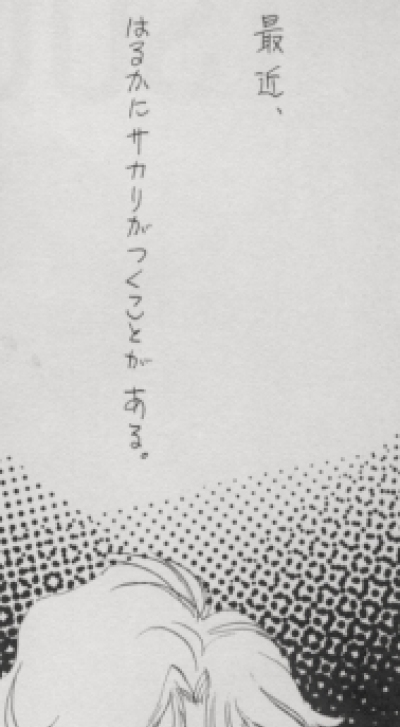 最近、
はるかにサカリがつくことが ある。